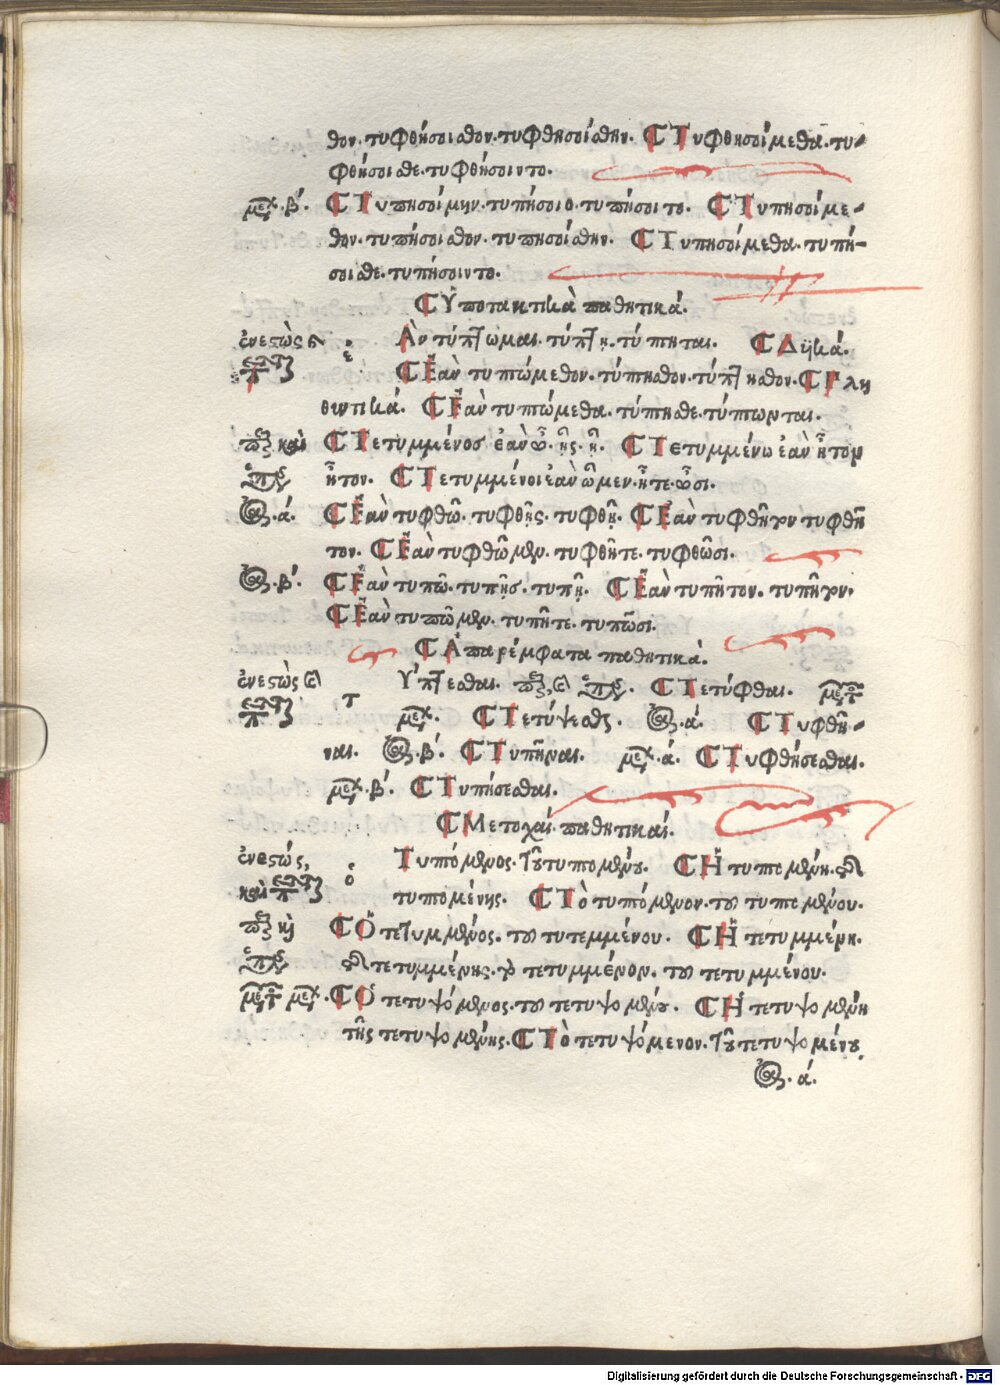 θον. τυφθήσοισθον. τυφθησοίσθην. Τυφθησοίμεθα. τυ-
φθήσοισθε. τυφθήσοιντο.
μελ. β΄. Τυπησοίμην. τυπήσοιο. τυπήσοιτο. Τυπησοίμε-
θον. τυπήσοισθον. τυπησοίσθην. Τυπησοίμεθα. τυπή-
σοισθε. τυπήσοιντο.
Ὑποτακτικὰ παθητικά.
ἐνεστὼς Ἀν τύπτωμαι. τύπτῃ. τύπτηται. Δυϊκά.
Ἐὰν τυπτώμεθον. τύπτησθον. τύπτησθον. Πλη
θυντικά. Ἐὰν τυπτώμεθα. τύπτησθε. τύπτωνται.
καὶ Τετυμμένοσ ἐὰν ὦ. ᾖς. ᾖ. Τετυμμένω ἐὰν ἦτον
ἦτον. Τετυμμένοι ἐὰν ὦμεν. ἦτε. ὦσι.
α΄. Ἐὰν τυφθῶ. τυφθῇς. τυφθῇ. Ἐὰν τυφθῆτον τυφθῆ
τον. Ἐὰν τυφθῶμεν. τυφθῆτε. τυφθῶσι.
β΄. Ἐὰν τυπῶ. τυπῇσ. τυπῇ. Ἐὰν τυπῆτον. τυπῆτον.
Ἐὰν τυπῶμεν. τυπῆτε. τυπῶσι.
Ἀπαρέμφατα παθητικά.
ἐνεστὼς Τύπτεσθαι. Τετύφθαι.
μελ. Τετύψεσθαι. α΄. Τυφθῆ-
ναι. β΄. Τυπῆναι. μελ. α΄. Τυφθήσεσθαι.
μελ. β΄. Τυπήσεσθαι.
Μετοχαὶ παθητικαί.
ἐνεστώς, ὁ Τυπτόμενος. τοῦ τυπτομένου. Ἡ τυπτομένη. τῆς
καὶ τυπτομένης. Τὸ τυπτόμενον. του τυπτομένου.
Ὁ τετυμμένος. του τυτεμμένου. Ἡ τετυμμένη.
τῆς τετυμμένης. τὸ τετυμμένον. του τετυμμένου.
μελ. Ὁ τετυψόμενος. του τετυψομένου. Ἡ τετυψομένη
τῆς τετυψομένης. Τὸ τετυψόμενον. τοῦ τετυψομένου.
α΄.
Digitalisierung gefördert durch die Deutsche Forschungsgemeinschaft - DFG